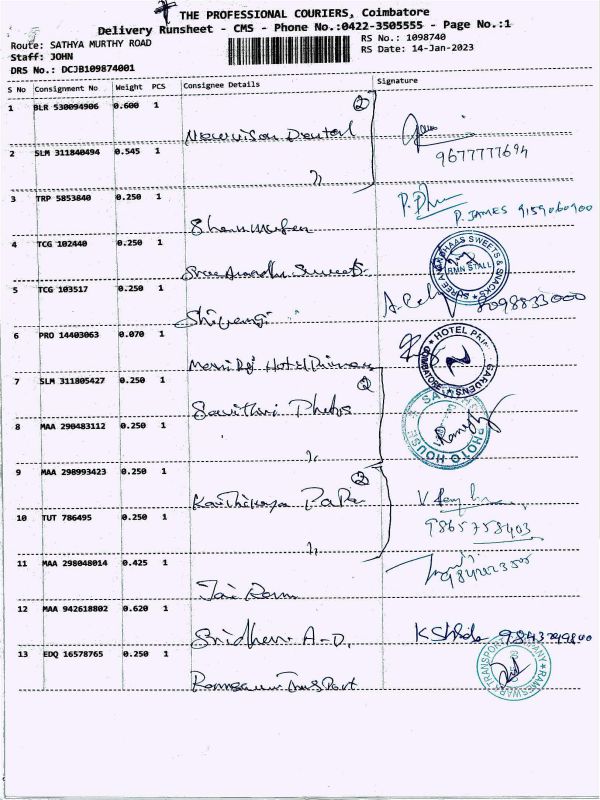 THE PROFESSIONAL COURIERS, Coimbatore
Delivery Runsheet - CMS - Phone No.:0422-3505555 - Page No.:1
Route: SATHYA MURTHY ROAD
RS No.: 1098740
Staff: JOHN
RS Date: 14-Jan-2023
DRS No.: DCJB109874001
S No Consignment No Weight PCS Consignee Details Signature
1 BLR 530094906 0.600 1
2
Newvison Dental
2 SLM 311840494 0.545 1
9677777694
3 TRP 5853840 0.250 1
P. JAMES 9159060900
4 TCG 102440 0.250 1
SHREE ANANDHAAS SWEETS & SNACKS
RMN STALL
Sree Anandha Sweets
5 TCG 103517 0.250 1
8098833000
Shivangi
6 PRO 14403063 0.070 1
HOTEL
GARDENS
COIMBATORE
7 SLM 311805427 0.250 1
2
Savithri Photos
8 MAA 290483112 0.250 1
PHOTO HOUSE
9 MAA 298993423 0.250 1
2
Karthikaya PaPa
10 TUT 786495 0.250 1
9865758403
11 MAA 298048014 0.425 1
Jai Ram
12 MAA 942618802 0.620 1
Sridharr A-D.
9843749800
13 EDQ 16578765 0.250 1
RAMESWARA TRANSPORT COMPANY